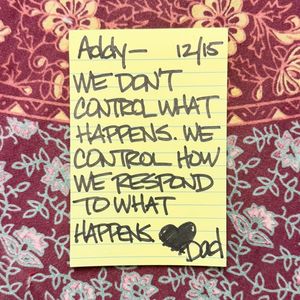 Addy— 12/15
WE DON'T
CONTROL WHAT
HAPPENS. WE
CONTROL HOW
WE RESPOND
TO WHAT
HAPPENS
Dad